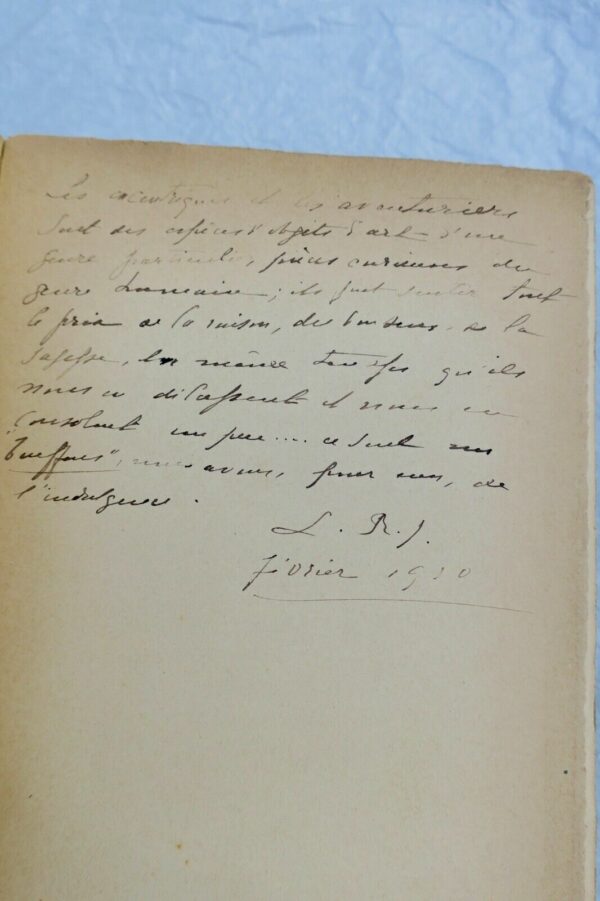 Les excentriques et les aventuriers
sont des espèces d'objets d'art d'une
genre particulier, pièces curieuses du
genre humaine; ils font sentir tout
le prix de la raison, du bon sens, de la
sagesse, en même temps qu'ils
nous en délassent et nous en
consolent un peu.... ce sont nos
"bouffons", nous avons, pour eux, de
l'indulgence.
L. R. J.
février 1910